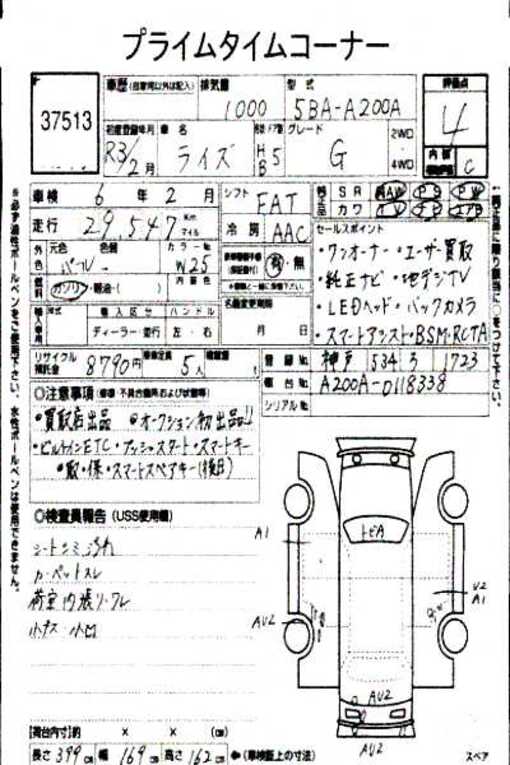 プライムタイムコーナー
37513
車歴 (自家用以外は記入) 排気量 1000 型式 5BA-A200A
評価点 4
初度登録年月 R3/2月 車名 ライズ HB 5 グレード G 2WD 4WD
内装 C
車検 6年2月 シフト FAT
SR AW PS PW
カワ TV エアB
走行 29,547 Km マイル 冷房 AAC
セールスポイント
・ワンオーナー ・ユーザー買取
・純正ナビ ・地デジTV
・LEDヘッド ・バックカメラ
・スマートアシスト・BSM・RCTA
外色 元色 パール 色替 カラーNo W25
有・無
燃料 ガソリン・軽油・( ) 内装色
名義変更期限 月 日
輸入車用 年式 輸入区分 ハンドル
ディーラー・並行 左・右
リサイクル預託金 8790円 乗車定員 5人 積載量 t
登録No 神戸 534 ろ 1723
車台No A200A-0118338
シリアルNo
◎注意事項 (修復・不具合箇所および状態等)
・買取店出品 ・オークション初出品!!
・ビルトインETC・プッシュスタート・スマートキー
・取・保・スマートスペアキー(後日)
◎検査員報告 (USS使用欄)
シートシミ汚れ
カーペットスレ
荷室内張りワレ
小キズ・小凹
トビA
A1
U2
A1
AU2
AU2
AU2
[荷台内寸]約 × × (cm)
長さ 399cm 幅 169cm 高さ 162cm ◆(車検証上の寸法)
スペア
※必ず油性ボールペンをご使用下さい。水性ボールペンは使用できません。